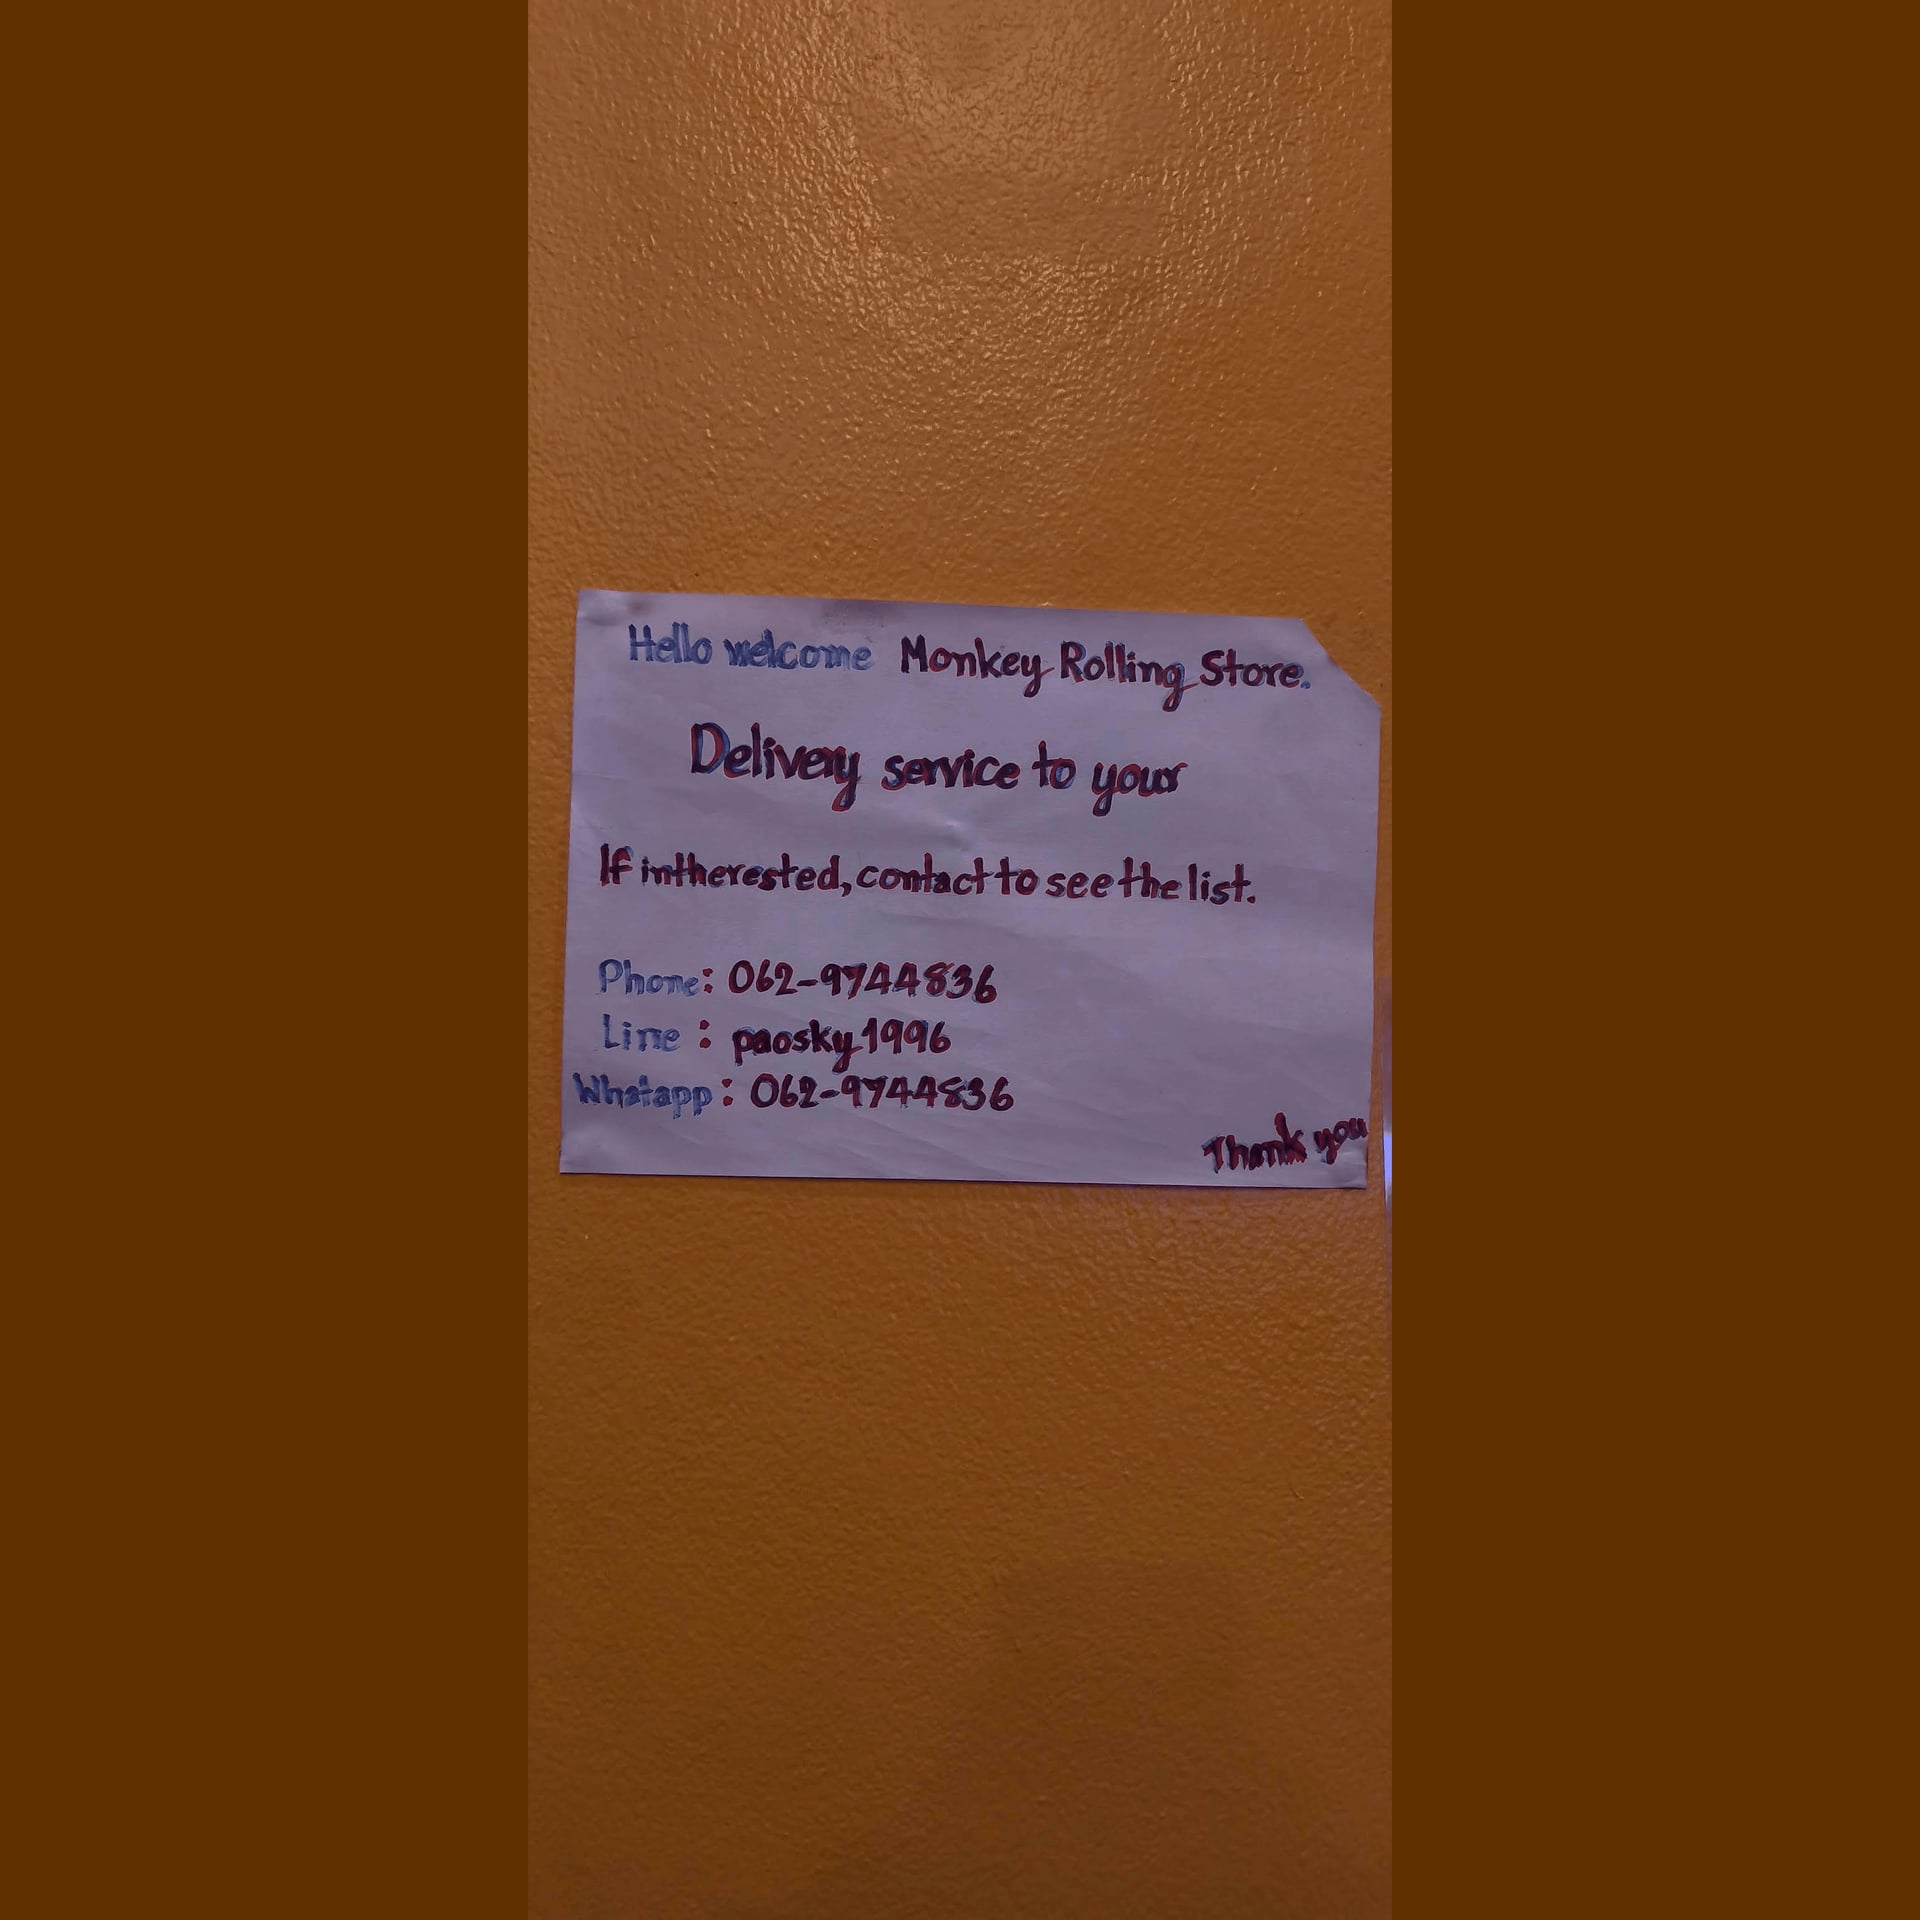 Hello welcome Monkey Rolling Store.
Delivery service to your
If intherested, contact to see the list.
Phone: 062-9744836
Line : paosky1996
Whatapp: 062-9744836
Thank you